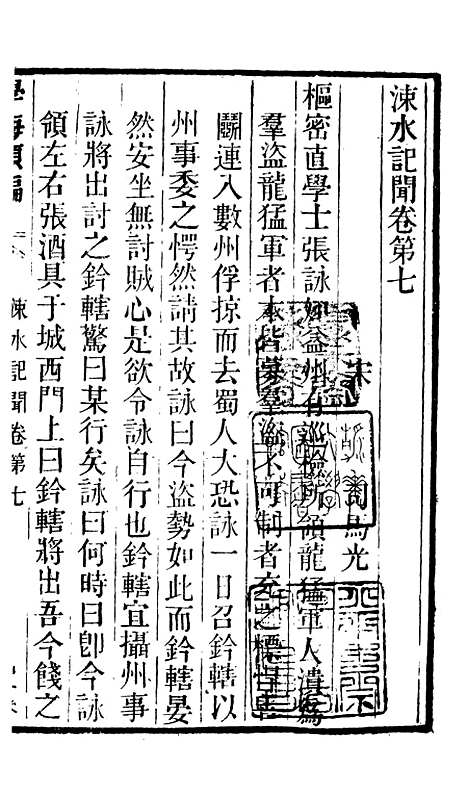 涑水記聞卷第七
宋 司馬光
樞密直學士張詠知益州有巡檢所領龍猛軍人潰為
羣盜龍猛軍者本皆募羣盜不可制者充之慓悍善
鬬連入數州俘掠而去蜀人大恐詠一日召鈐轄以
州事委之愕然請其故詠曰今盜勢如此而鈐轄晏
然安坐無討賊心是欲令詠自行也鈐轄宜攝州事
詠將出討之鈐轄驚曰某行矣詠曰何時曰卽今詠
領左右張酒具于城西門上曰鈐轄將出吾今餞之
學海類編
涑水記聞卷第七